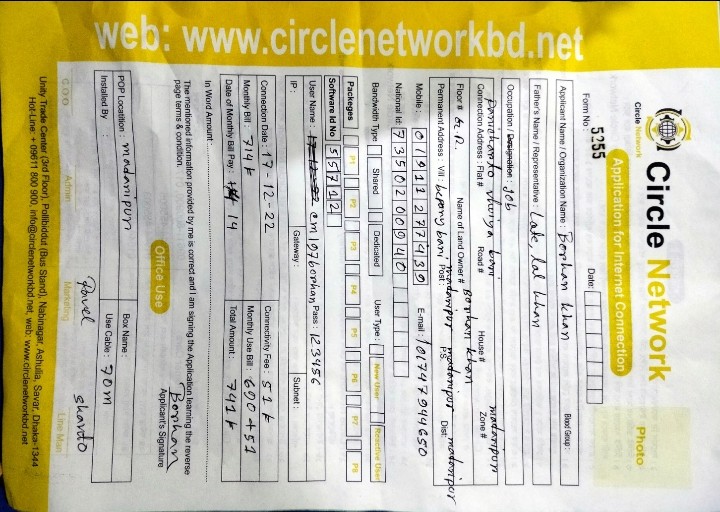 Circle Network
Circle Network
Application for Internet Connection
Photo
Form No : 5255
Date:
Applicant Name / Organization Name : Borhan khan
Blood Group :
Father's Name / Representative : Late, lal khan
Occupation / Designation : Job
Connection Address : Flat # Road # House # Zone #
madaripur
Floor # G.R. Name of Land Owner # Borhan khan
Permanent Address : Vill : bepary bari Post : madaripur P.S. madaripur Dist: madaripur
Mobile : 01911277439 E-mail : 01747944650
National Id: 7350200940
Bandwidth Type : Shared Dedicated User Type : New User Reactive User
Packeges P1 P2 P3 P4 P5 P6 P7 P8
Software Id No. 55712
User Name : cm107borhan Pass : 123456
IP : Gateway : Subnet :
Connection Date : 17-12-22 Connectivity Fee : 51৳
Monthly Bill : 714৳ Monthly Use Bill : 690+51
Date of Monthly Bill Pay : 14 Total Amount : 741৳
In Word Amount :
The mentioned information provided by me is correct and i am signing the Application learning the reverse
page terms & condition.
Borhan
Applicant's Signature
Office Use
POP Locatition : madaripur Box Name :
Installed By : Use Cable : 70m
Pavel shanto
C.O.O Admin Marketing Line Man
Unity Trade Center (3rd Floor), Pollibiddut (Bus Stand), Nabinagar, Ashulia, Savar, Dhaka-1344
Hot-Line: + 09611 800 900, info@circlenetworkbd.net, web: www.circlenetworkbd.net
web: www.circlenetworkbd.net